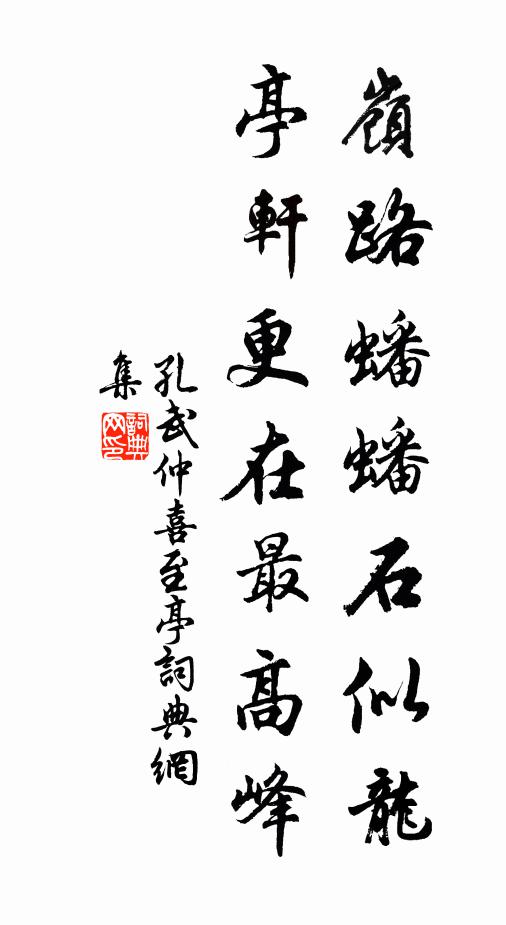 嶺路蟠蟠石似龍
亭軒更在最高峰
孔武仲喜至亭詞典網
集
詞典
网印